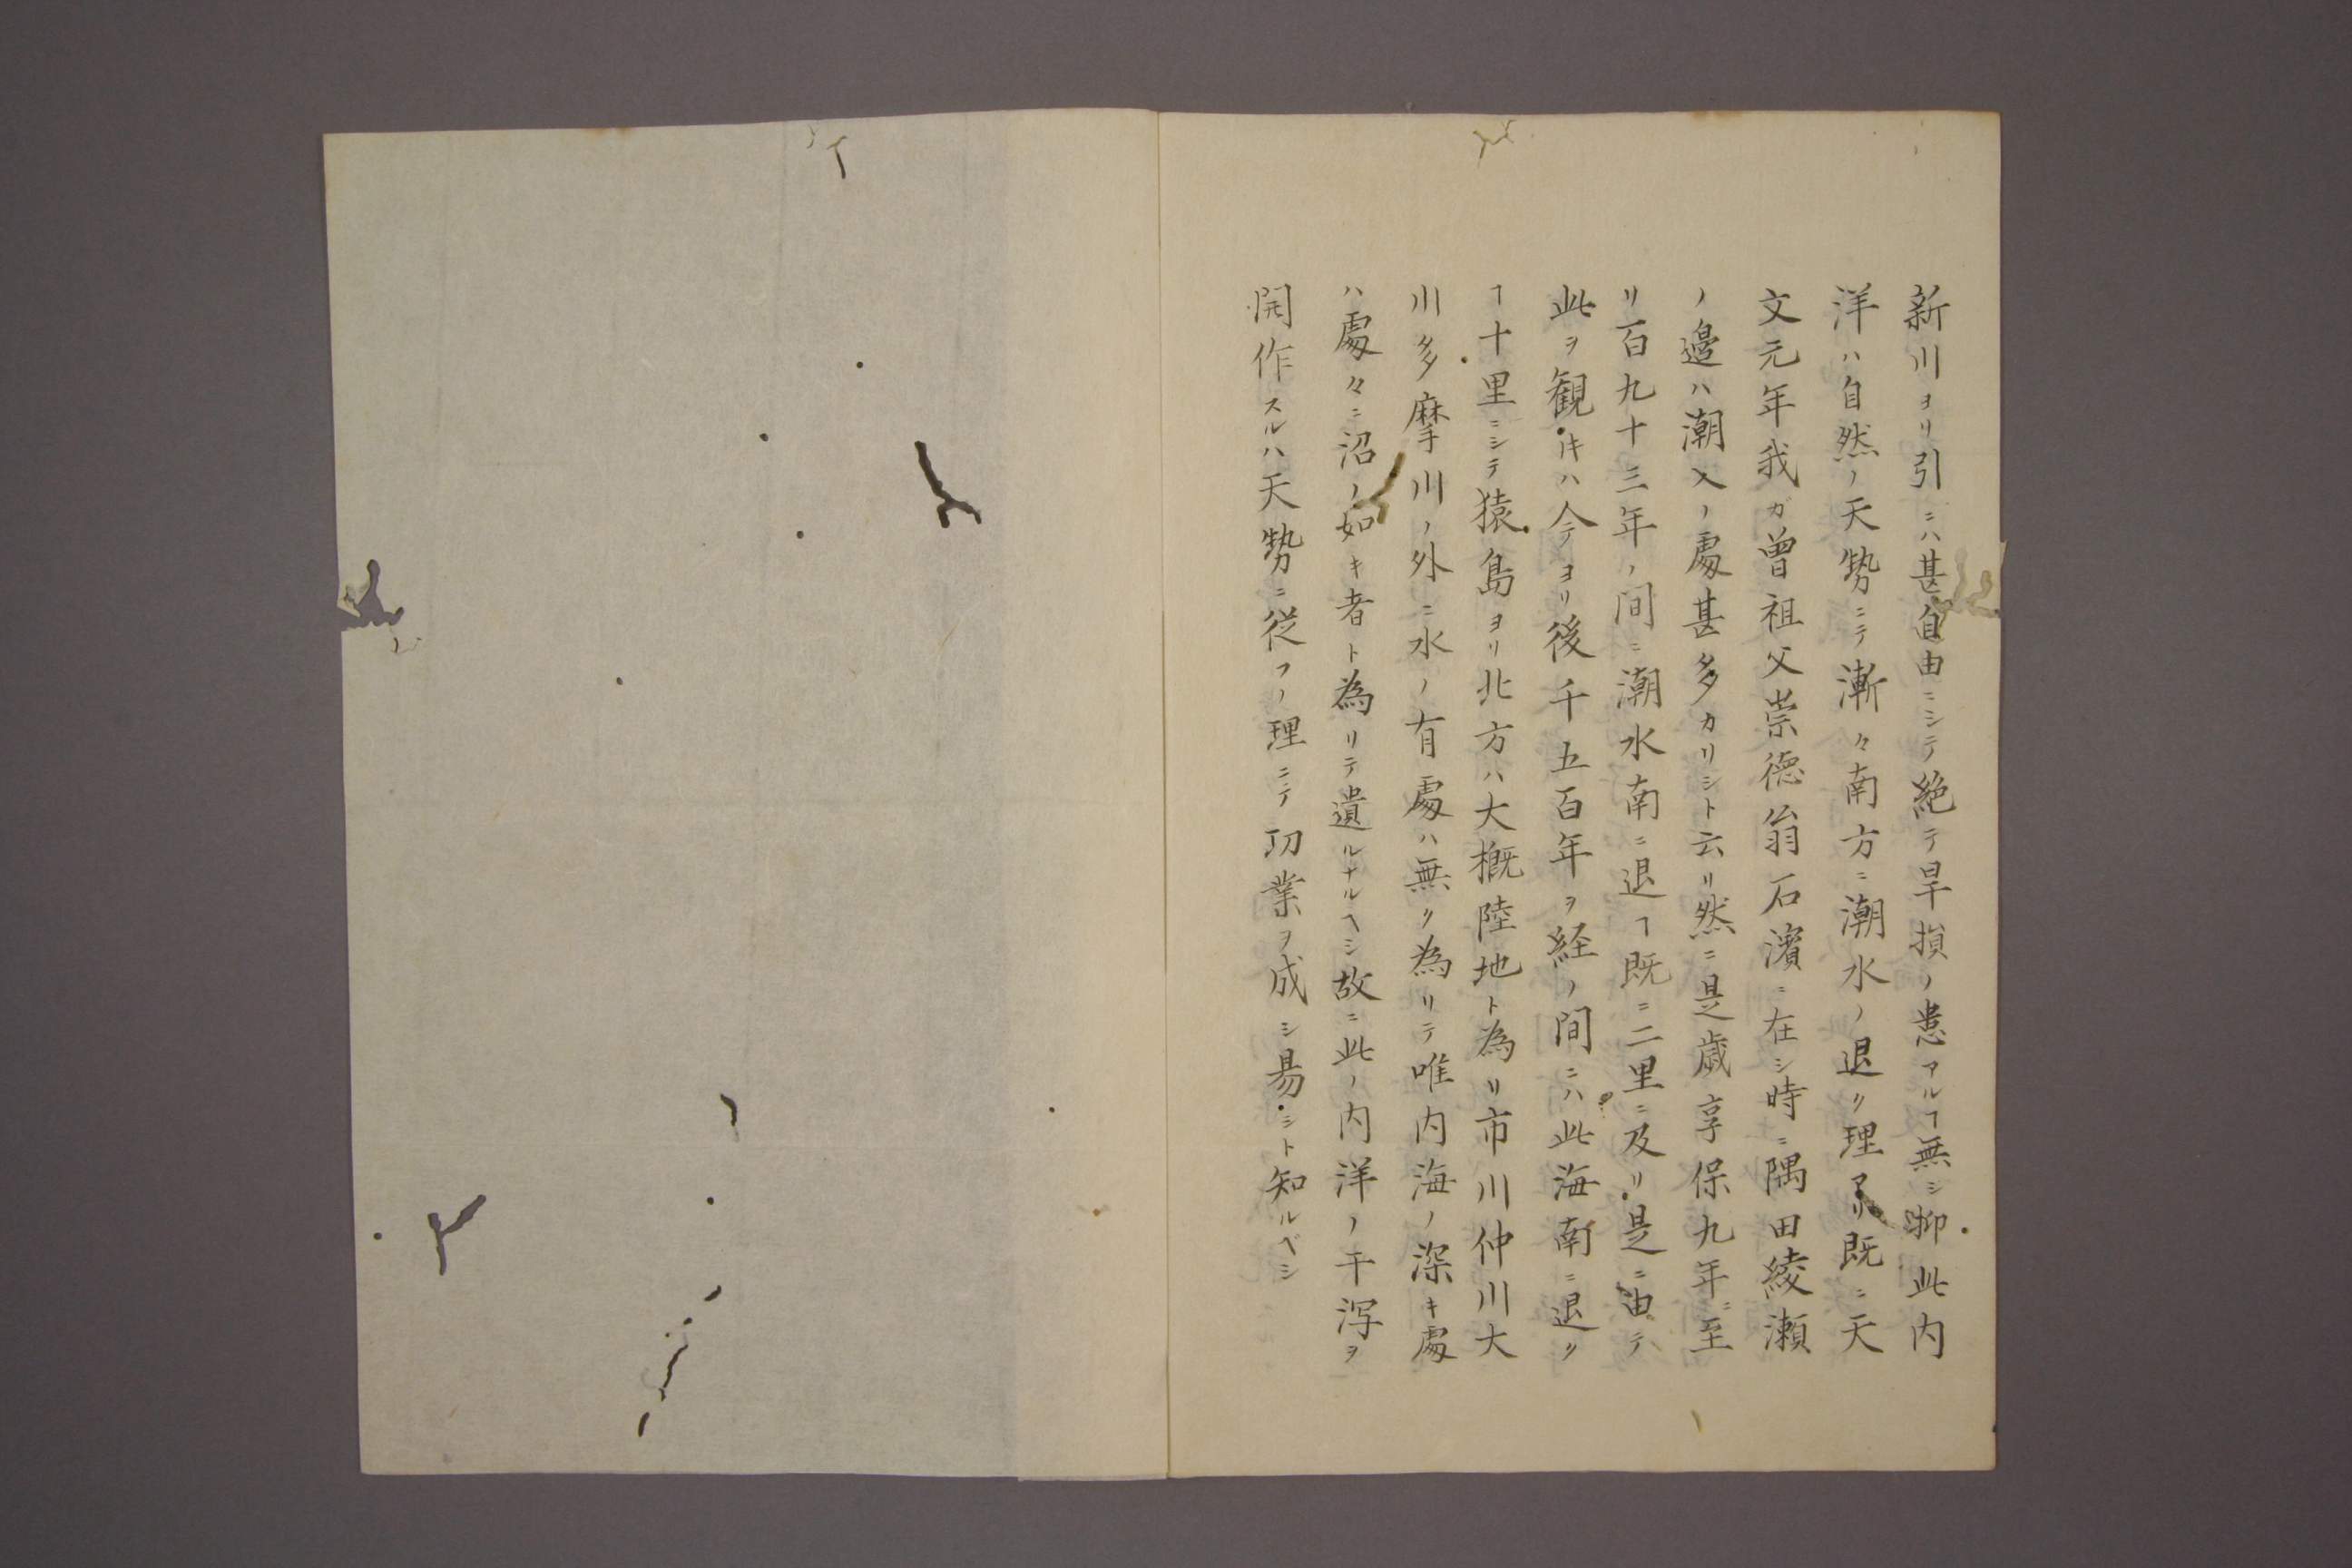 新川ヨリ引ニハ甚自由ニシテ絶テ旱損ノ患アルヿ無シ抑此内
洋ハ自然ノ天勢ニテ漸々南方ニ潮水ノ退ク理アリ既ニ天
文元年我ガ曽祖父崇徳翁石濱ニ在シ時ニ隅田綾瀬
ノ邉ハ潮入ノ處甚多カリシト云リ然ニ是歳享保九年ニ至
リ百九十三年ノ間ニ潮水南ニ退ヿ既ニ二里ニ及リ是ニ由テ
此ヲ観キハ今テヨリ後千五百年ヲ経ノ間ニハ此海南ニ退ク
ヿ十里ニシテ猿島ヨリ北方ハ大概陸地ト為リ市川仲川大
川多摩川ノ外ニ水ノ有處ハ無ク為リテ唯内海ノ深キ處
ハ處々ニ沼ノ如キ者ト為リテ遺ルナルヘシ故ニ此ノ内洋ノ干泻ヲ
開作スルハ天勢ニ従フノ理ニテ功業ヲ成シ易シト知ルベシ